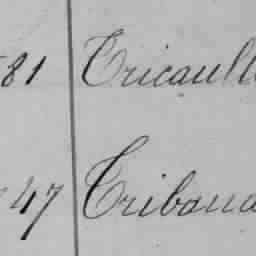 81 Tricault
47 Tribou